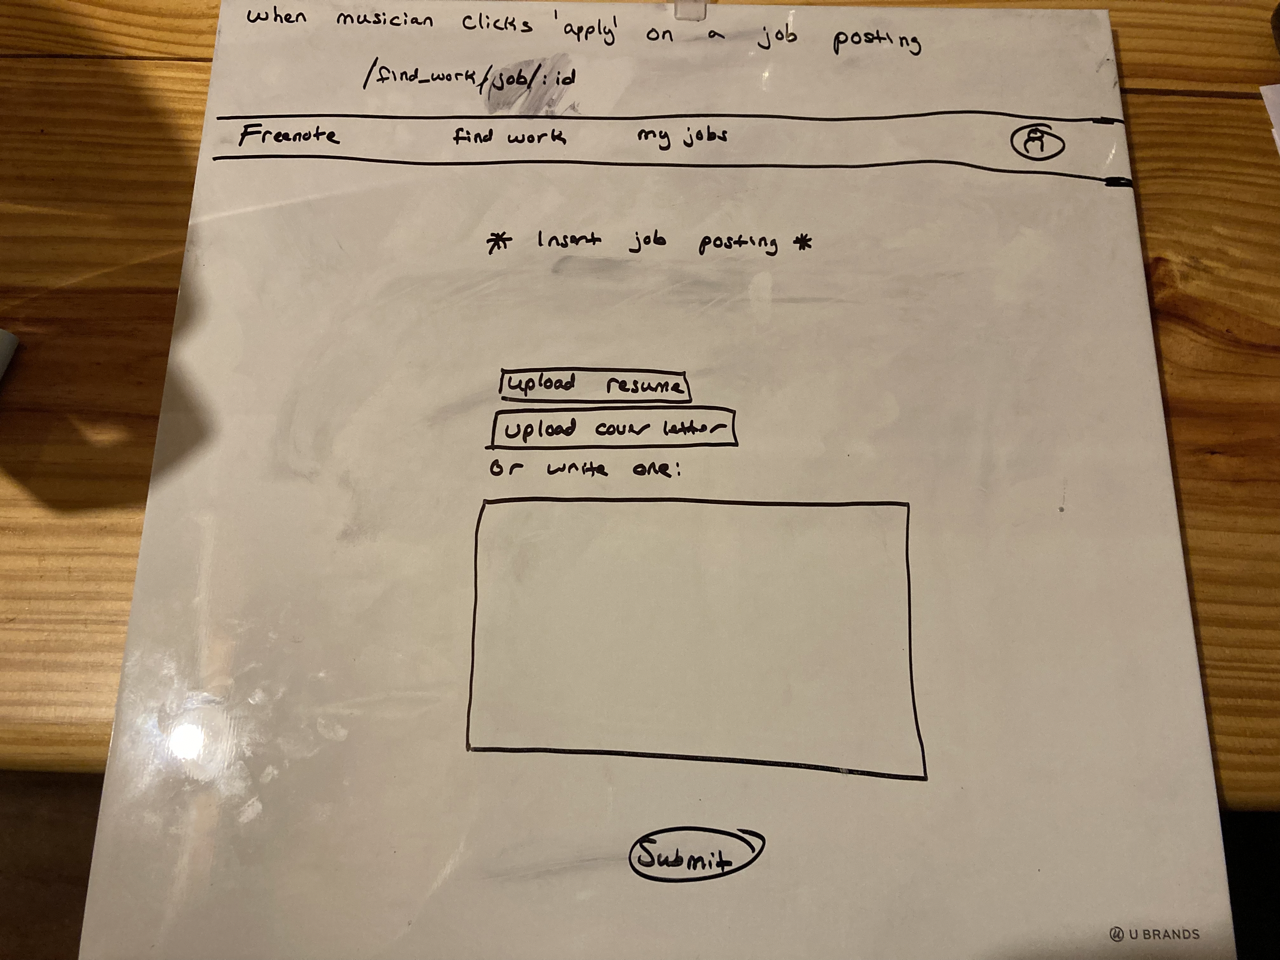 when musician clicks 'apply' on a job posting
/find_work/job/:id
Freenote find work my jobs
* Insert job posting *
upload resume
upload cover letter
or write one:
Submit
U BRANDS